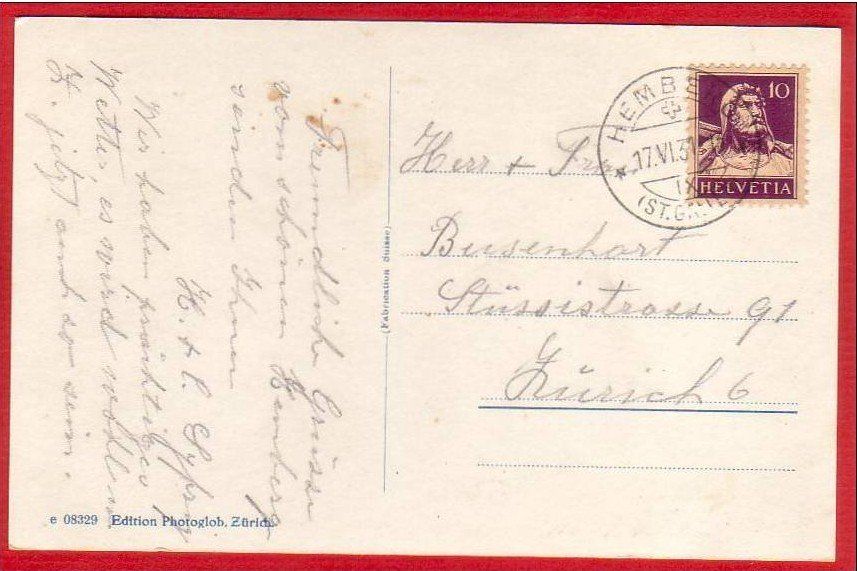 Freundliche Grüsse
vom schönen Hemberg
senden Ihnen
H. + C.
Wir haben prächtiges
Wetter, es wird wohl in
Z. jetzt auch so sein.
(Fabrication Suisse)
e 08329 Edition Photoglob, Zürich.
HEMB
17.VI.31
IX
(ST.G
10
HELVETIA
Herr + Fr
Busenhart
Stüssistrasse 91
Zürich 6